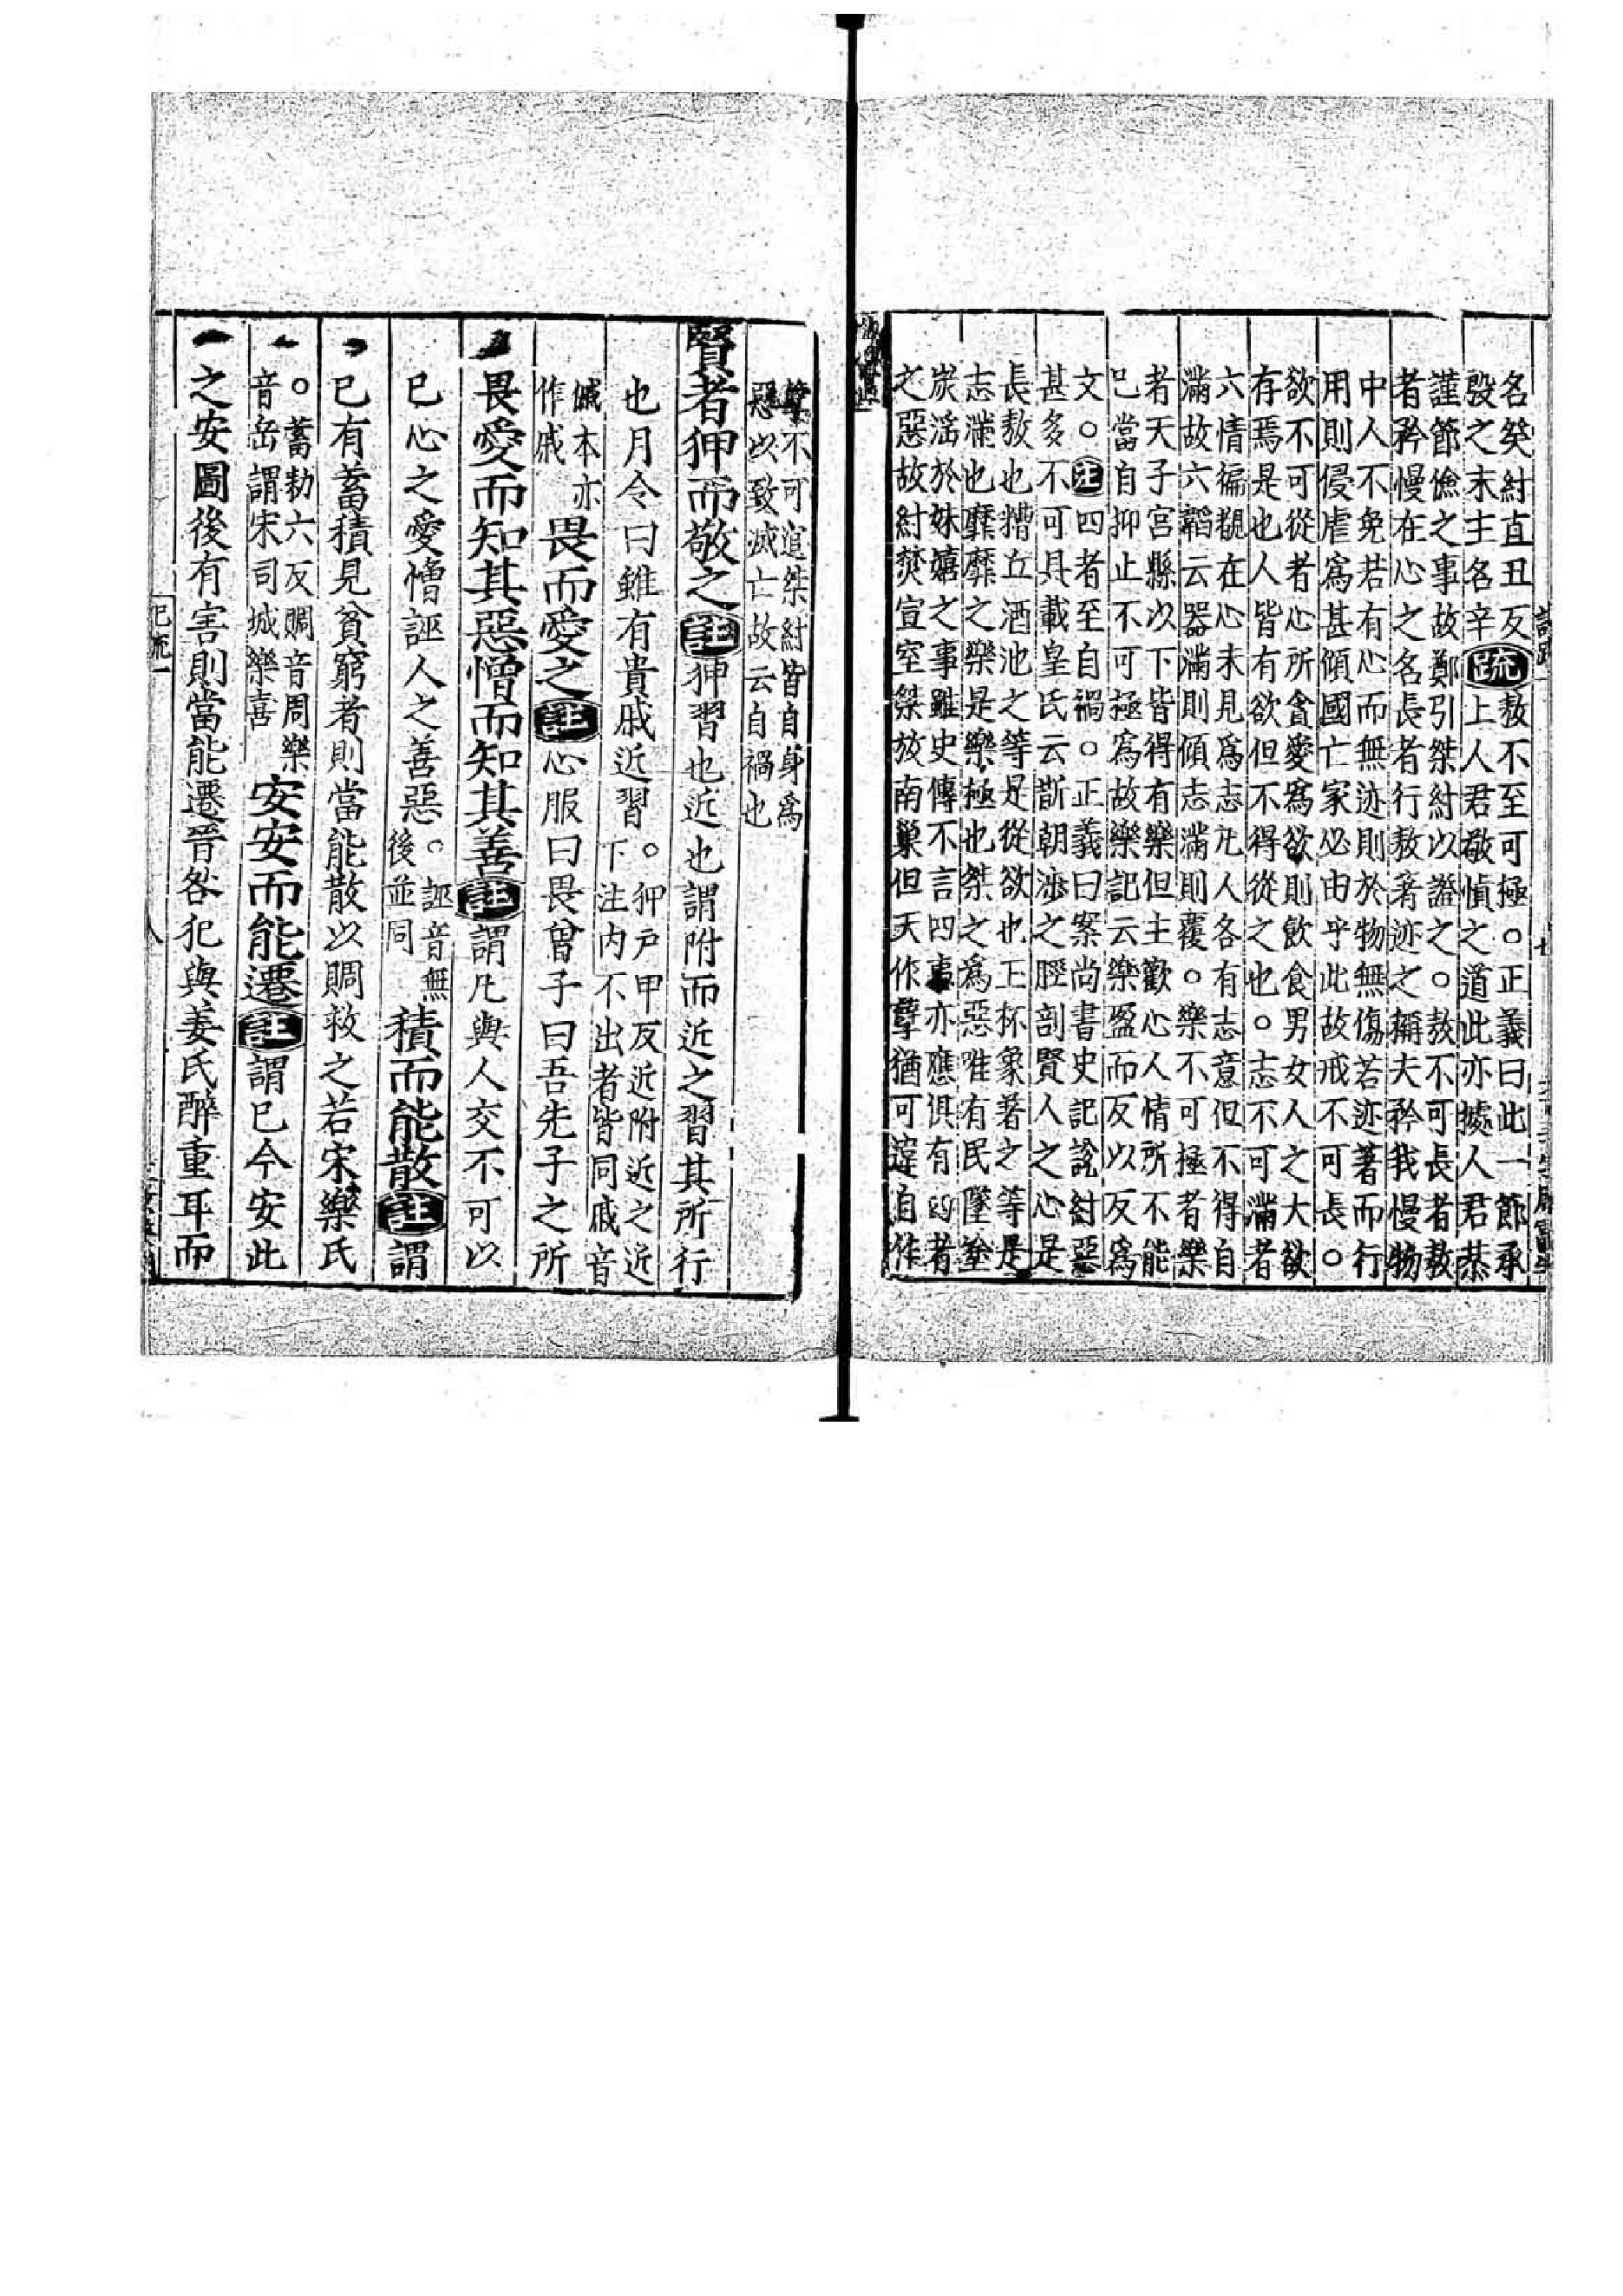 名癸紂直丑反疏敖不至可極○正義曰此一節承
殷之末主名辛上人君敬慎之道此亦據人君恭
謹節儉之事故鄭引桀紂以證之○敖不可長者敖
者矜慢在心之名長者行敖著迹之稱夫矜我慢物
中人不免若有心而無迹則於物無傷若迹著而行
用則侵虐爲甚傾國亡家必由乎此故戒不可長○
欲不可從者心所貪愛爲欲則飲食男女人之大欲
存焉是也人皆有欲但不得從之也○志不可滿者
六情徧覩在心未見爲志凡人各有志意但不得自
滿故六韜云器滿則傾志滿則覆○樂不可極者樂
者天子宮縣以下皆得有樂但主歡心人情所不能
已當自抑止不可極爲故樂記云樂盈而反以反爲
文○注四者至自禍○正義曰案尚書史記說紂惡
甚多不可具載皇氏云斮朝涉之脛剖賢人之心是
長敖也糟丘酒池之等是從欲也玉杯象箸之等是
志滿也靡靡之樂是樂極也桀之爲惡唯有民墜塗
炭淫於妹嬉之事雖史傳不言四事亦應俱有四者
之惡故紂焚宣室桀放南巢但天作孽猶可違自作
孽不可逭桀紂皆自身爲
惡以致滅亡故云自禍也
賢者狎而敬之註狎習也近也謂附而近之習其所行
也月令曰雖有貴戚近習○狎戸甲反近附近之近
下注内不出者皆同戚音
慽本亦
作戚
畏而愛之註心服曰畏曾子曰吾先子之所
畏愛而知其惡憎而知其善註謂凡與人交不可以
已心之愛憎誣人之善惡○誣音無
後並同
積而能散註謂
已有蓄積見貧窮者則當能散以賙救之若宋樂氏
○蓄勑六反賙音周樂
音岳謂宋司城樂喜
安安而能遷註謂已今安此
之安圖後有害則當能遷晉咎犯與姜氏醉重耳而